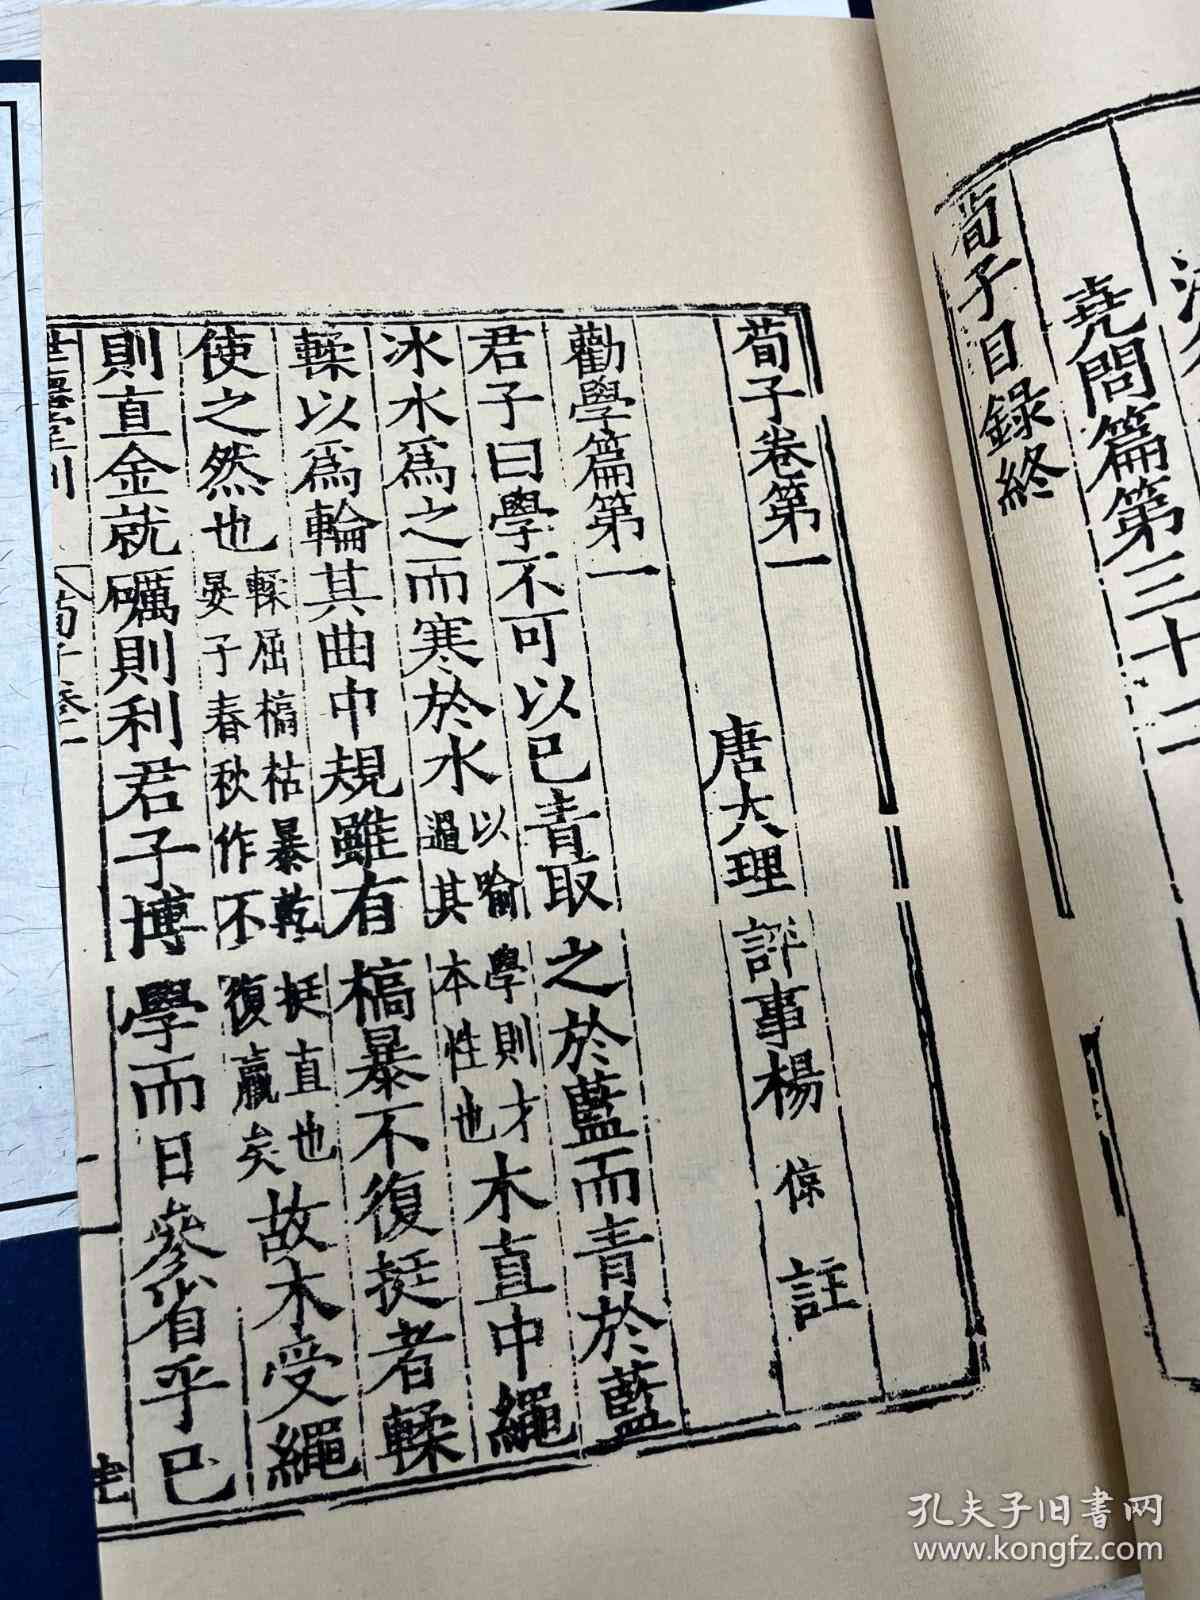 堯問篇第三十二
荀子目錄終
荀子卷第一
唐大理評事楊倞註
勸學篇第一
君子曰學不可以已青取之於藍而青於藍
冰水為之而寒於水以喻學則才過其本性也木直中繩
輮以為輪其曲中規雖有槁暴不復挺者輮
使之然也輮屈槁枯暴乾挺直也晏子春秋作不復贏矣故木受繩
則直金就礪則利君子博學而日參省乎已
孔夫子旧书网
www.kongfz.com